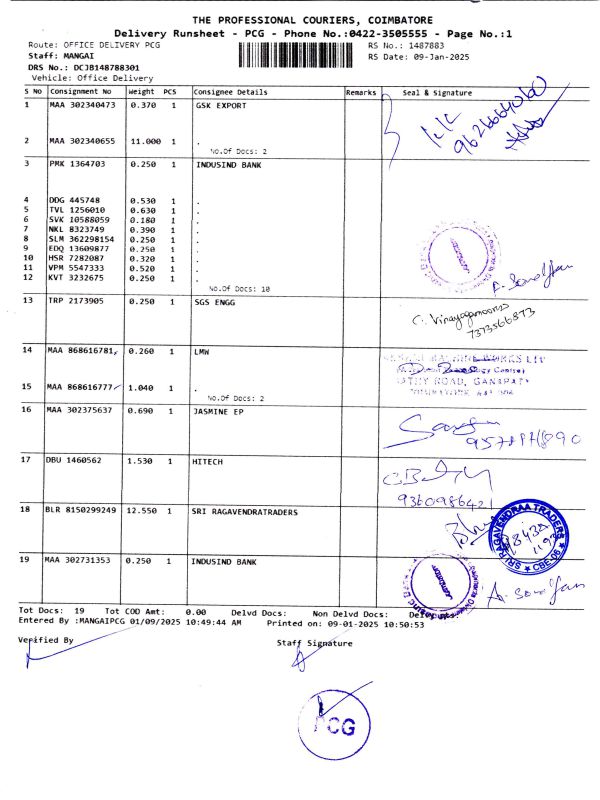 THE PROFESSIONAL COURIERS, COIMBATORE
Delivery Runsheet - PCG - Phone No.:0422-3505555 - Page No.:1
Route: OFFICE DELIVERY PCG
RS No.: 1487883
Staff: MANGAI
RS Date: 09-Jan-2025
DRS No.: DCJB148788301
Vehicle: Office Delivery
S No Consignment No Weight PCS Consignee Details Remarks Seal & Signature
1 MAA 302340473 0.370 1 GSK EXPORT
2 MAA 302340655 11.000 1 .
No.Of Docs: 2
3 PMK 1364703 0.250 1 INDUSIND BANK
4 DDG 445748 0.530 1 .
5 TVL 1256010 0.630 1 .
6 SVK 10588059 0.180 1 .
7 NKL 8323749 0.390 1 .
8 SLM 362298154 0.250 1 .
9 EDQ 13609877 0.250 1 .
10 HSR 7282087 0.320 1 .
11 VPM 5547333 0.520 1 .
12 KVT 3232675 0.250 1 .
No.Of Docs: 10
13 TRP 2173905 0.250 1 SGS ENGG
7373566873
14 MAA 868616781 0.260 1 LMW
15 MAA 868616777 1.040 1 .
No.Of Docs: 2
16 MAA 302375637 0.690 1 JASMINE EP
17 DBU 1460562 1.530 1 HITECH
936098642
18 BLR 8150299249 12.550 1 SRI RAGAVENDRATRADERS
SRI RAGAVENDRAA TRADERS
CBE-06
19 MAA 302731353 0.250 1 INDUSIND BANK
Tot Docs: 19 Tot COD Amt: 0.00 Delvd Docs: Non Delvd Docs:
Entered By :MANGAIPCG 01/09/2025 10:49:44 AM Printed on: 09-01-2025 10:50:53
Verified By Staff Signature
PCG